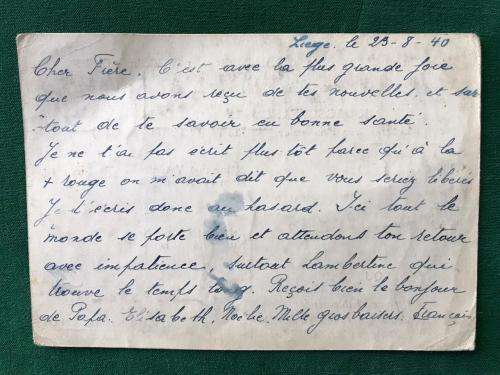 Liege. le 23-8-40
Cher Frère. C'est avec la plus grande joie
que nous avons reçu de tes nouvelles et sur
tout de te savoir en bonne santé.
Je ne t'ai pas écrit plus tôt parce qu'à la
+ rouge on m'avait dit que vous seriez libérés
Je t'écris donc au hasard. Ici tout le
monde se porte bien et attendons ton retour
avec impatience, surtout Lambertine qui
trouve le temps long. Reçois bien le bonjour
de Papa. Elisabeth. Mille gros baisers. François